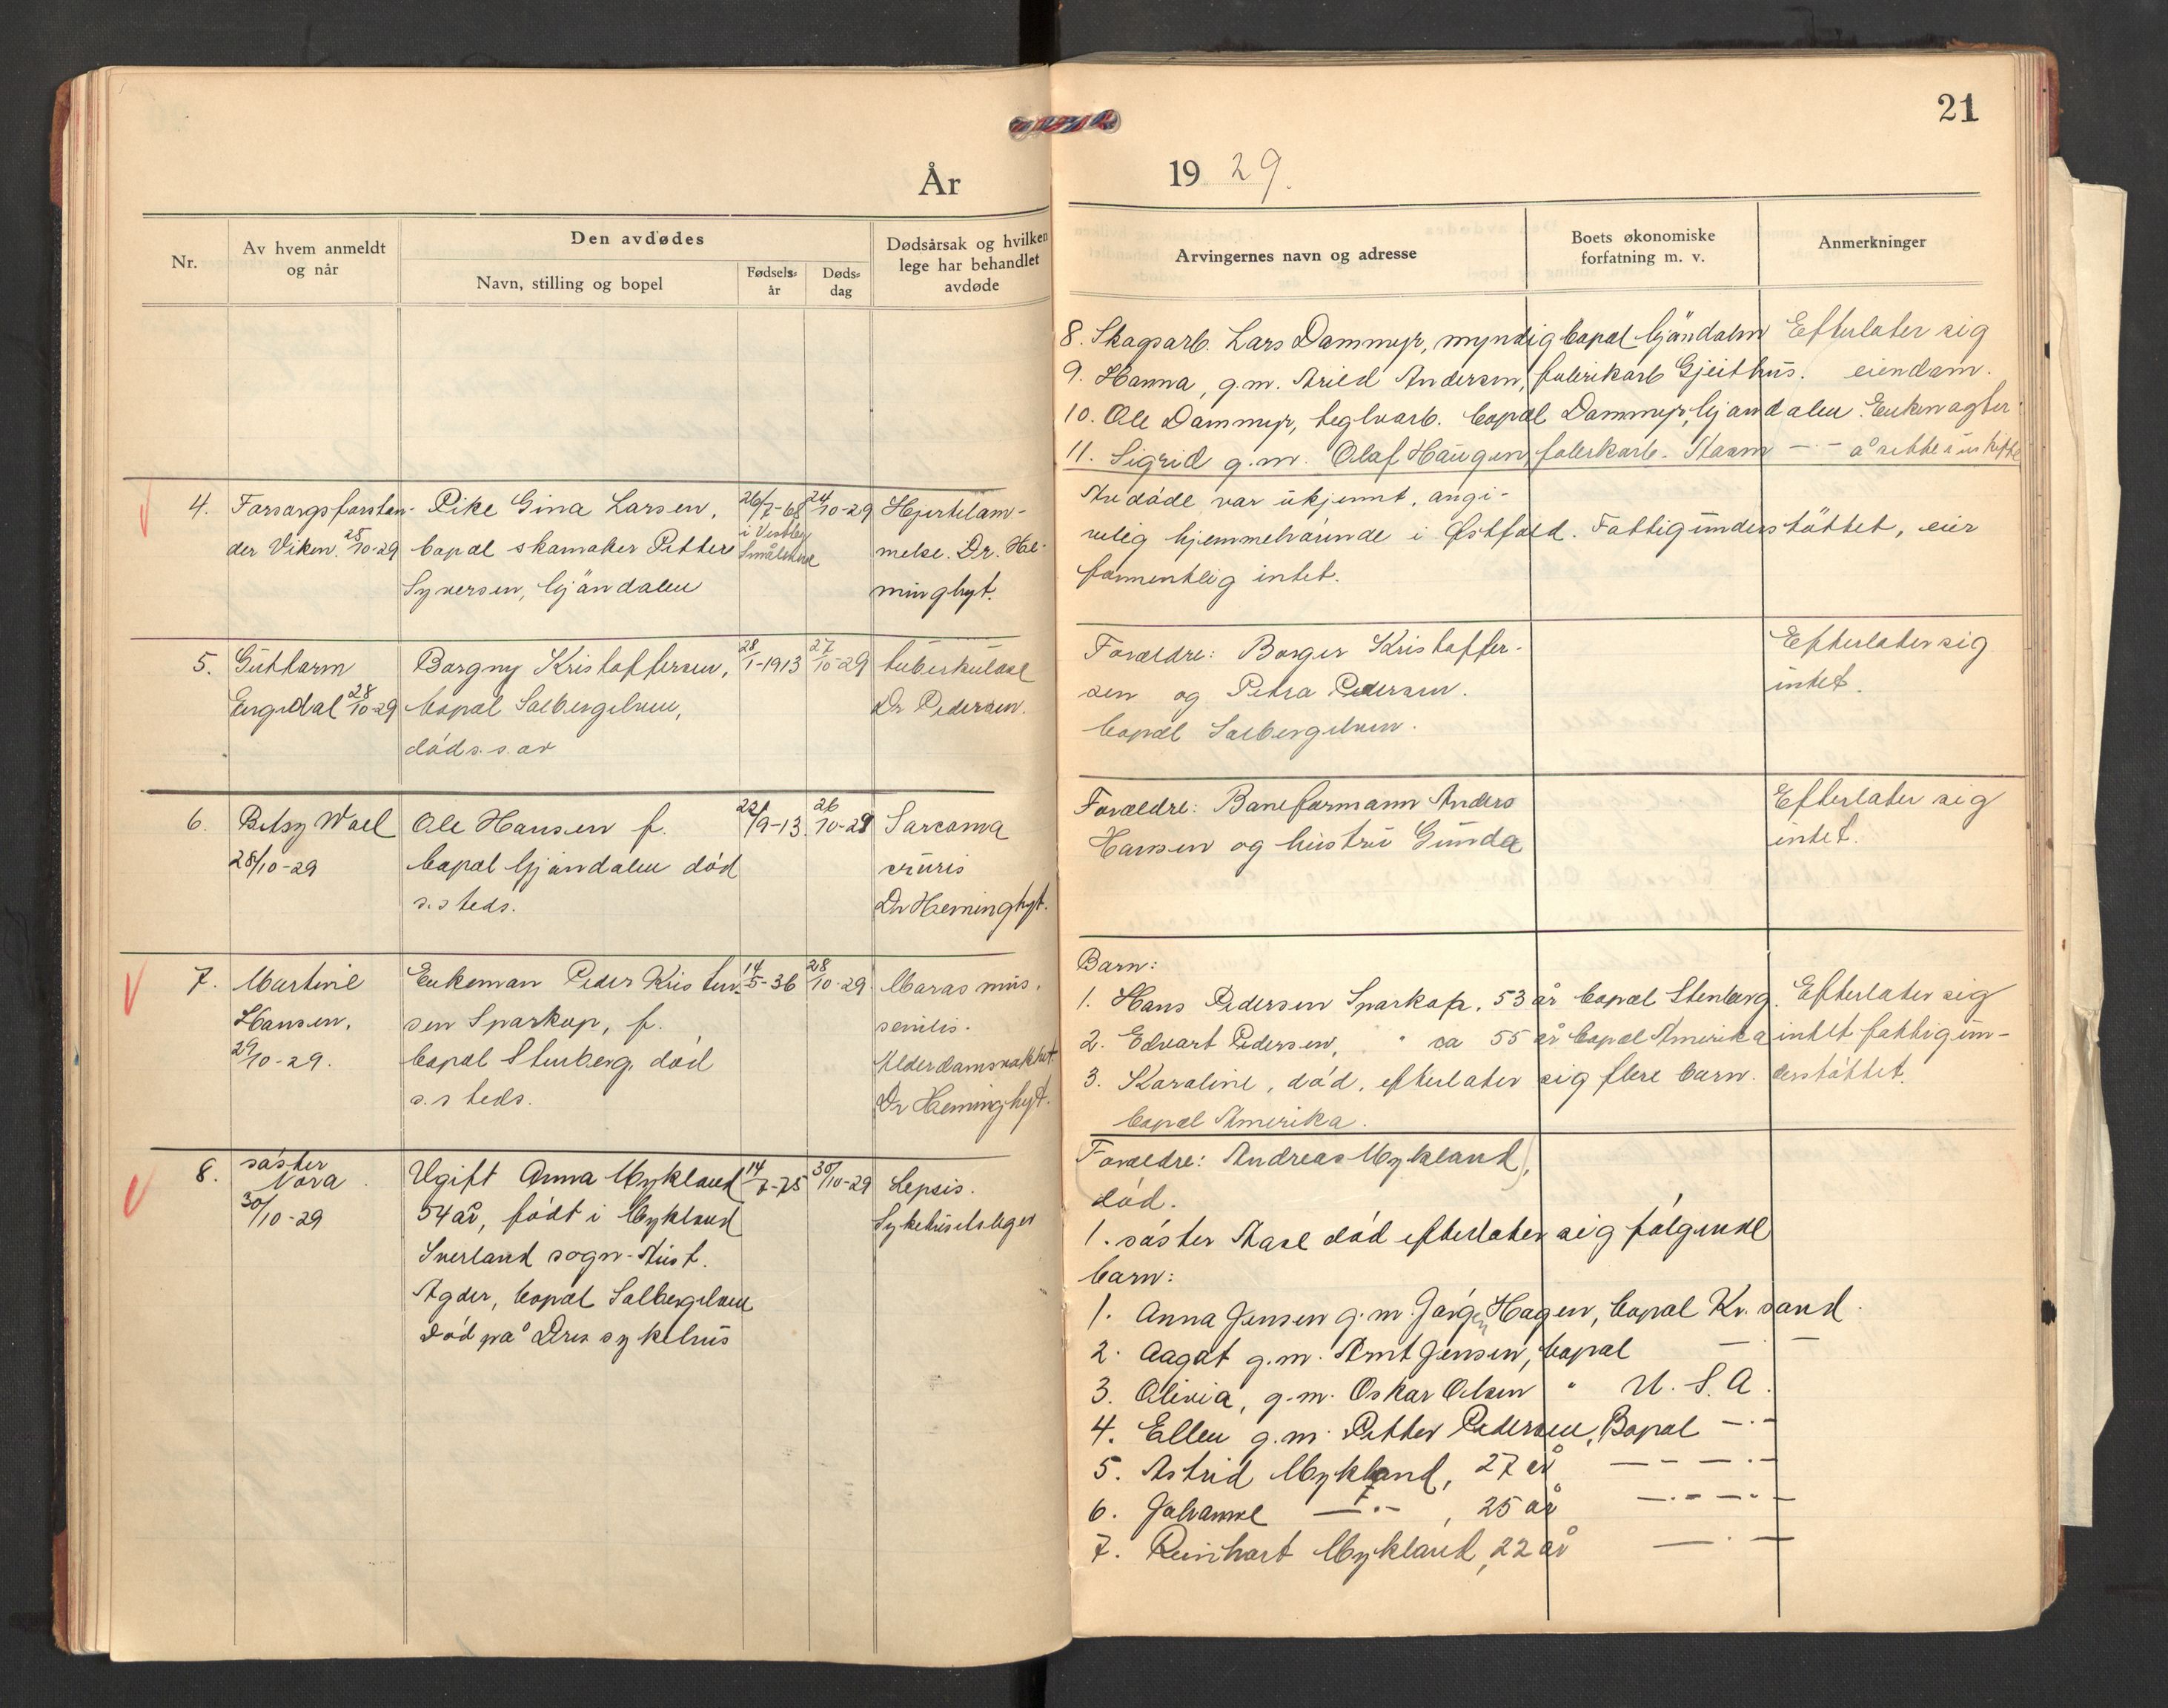 21
År 1929.
Nr.
Av hvem anmeldt
og når
Den avdødes
Navn, stilling og bopel
Fødsels-
år
Døds-
dag
Dødsårsak og hvilken
lege har behandlet
avdøde
Arvingernes navn og adresse
Boets økonomiske
forfatning m. v.
Anmerkninger
8. Skogsarb. Lars Dammyr, myndig bopæl Gjöndalen Efterlater sig
9. Hanna, g.m. Arild Andersen, fabrikarb Gjeithus. eiendom.
10. Ole Dammyr, teglvarb. bopæl Dammyr, Gjöndalen. Enken agter
11. Sigrid g.m. Olaf Haugen fabrikarb. Åaam —·— å sitte i uskifte
4.
Forsorgsforstan-
der Viken. 25/10-29
Pike Gina Larsen,
bopæl skomaker Petter
Syversen, Gjöndalen
26/7-68
i Vestby
Smålenene
24/10-29
Hjertelam-
melse. Dr. He-
minghyt.
Avdøde var ukjennt, angi-
velig hjemmehörende i Østfold. Fattigunderstöttet, eier
formentlig intet.
5.
Guttorm
Engedal 28/10-29
Borgny Kristoffersen,
bopæl Solbergelven,
död s.s. av
28/1-1913
27/10-29
tuberkulose
Dr Pedersen.
Forældre: Borger Kristoffer-
sen og Petra Pedersen.
bopæl Solbergelven.
Efterlater sig
intet.
6.
Betsy Woel
28/10-29
Ole Hansen f.
bopæl Gjöndalen död
s. steds.
22/9-13.
26/10-29
Sarcoma
cruris
Dr Heminghyt.
Forældre: Baneformann Anders
Hansen og hustru Gunda
Efterlater sig
intet.
7.
Martine
Hansen.
29/10-29.
Enkeman Peder Kristen-
sen Sparkop, f.
bopæl Stenberg, död
s.steds.
14/5-36
28/10-29
Marasmus.
senilis.
Alderdomsvakhet
Dr Heminghyt.
Barn:
1. Hans Pedersen Sparkop, 53 år bopæl Stenberg. Efterlater sig
2. Edvart Pedersen, " ca 55 år bopæl Amerika intet fattigun-
3. Karoline, död, efterlater sig flere barn. derstöttet.
bopæl Amerika.
8.
söster
Nora.
30/10-29
Ugift Anna Mykland
54 år, födt i Mykland
Sverland sogn - Aust.
Agder, bopæl Solbergelven
Död på Drm sykehus
14/7-75
30/10-29
Sepsis.
Sykehuslæger
Forældre: Andreas Mykland,
död.
1. söster Aase död efterlater sig fölgende
barn:
1. Anna Jensen g.m. Jörgen Hagen, bopæl Kr. sand.
2. Aagot g.m. Arnt Jensen, bopæl — · —
3. Olivia, g.m. Oskar Olsen " U. S. A.
4. Ellen g.m. Petter Pedersen, Bopæl —·—
5. Astrid Mykland, 27 år — — — · —
6. Johanne —·— , 25 år —·—·—·—
7. Reinhart Mykland, 22 år — · —